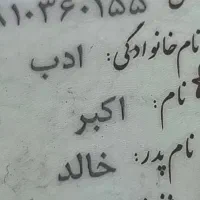 ۸۱۰۳۶۰۱۵۵
نام خانوادگی: ادب
نام: اکبر
نام پدر: خالد